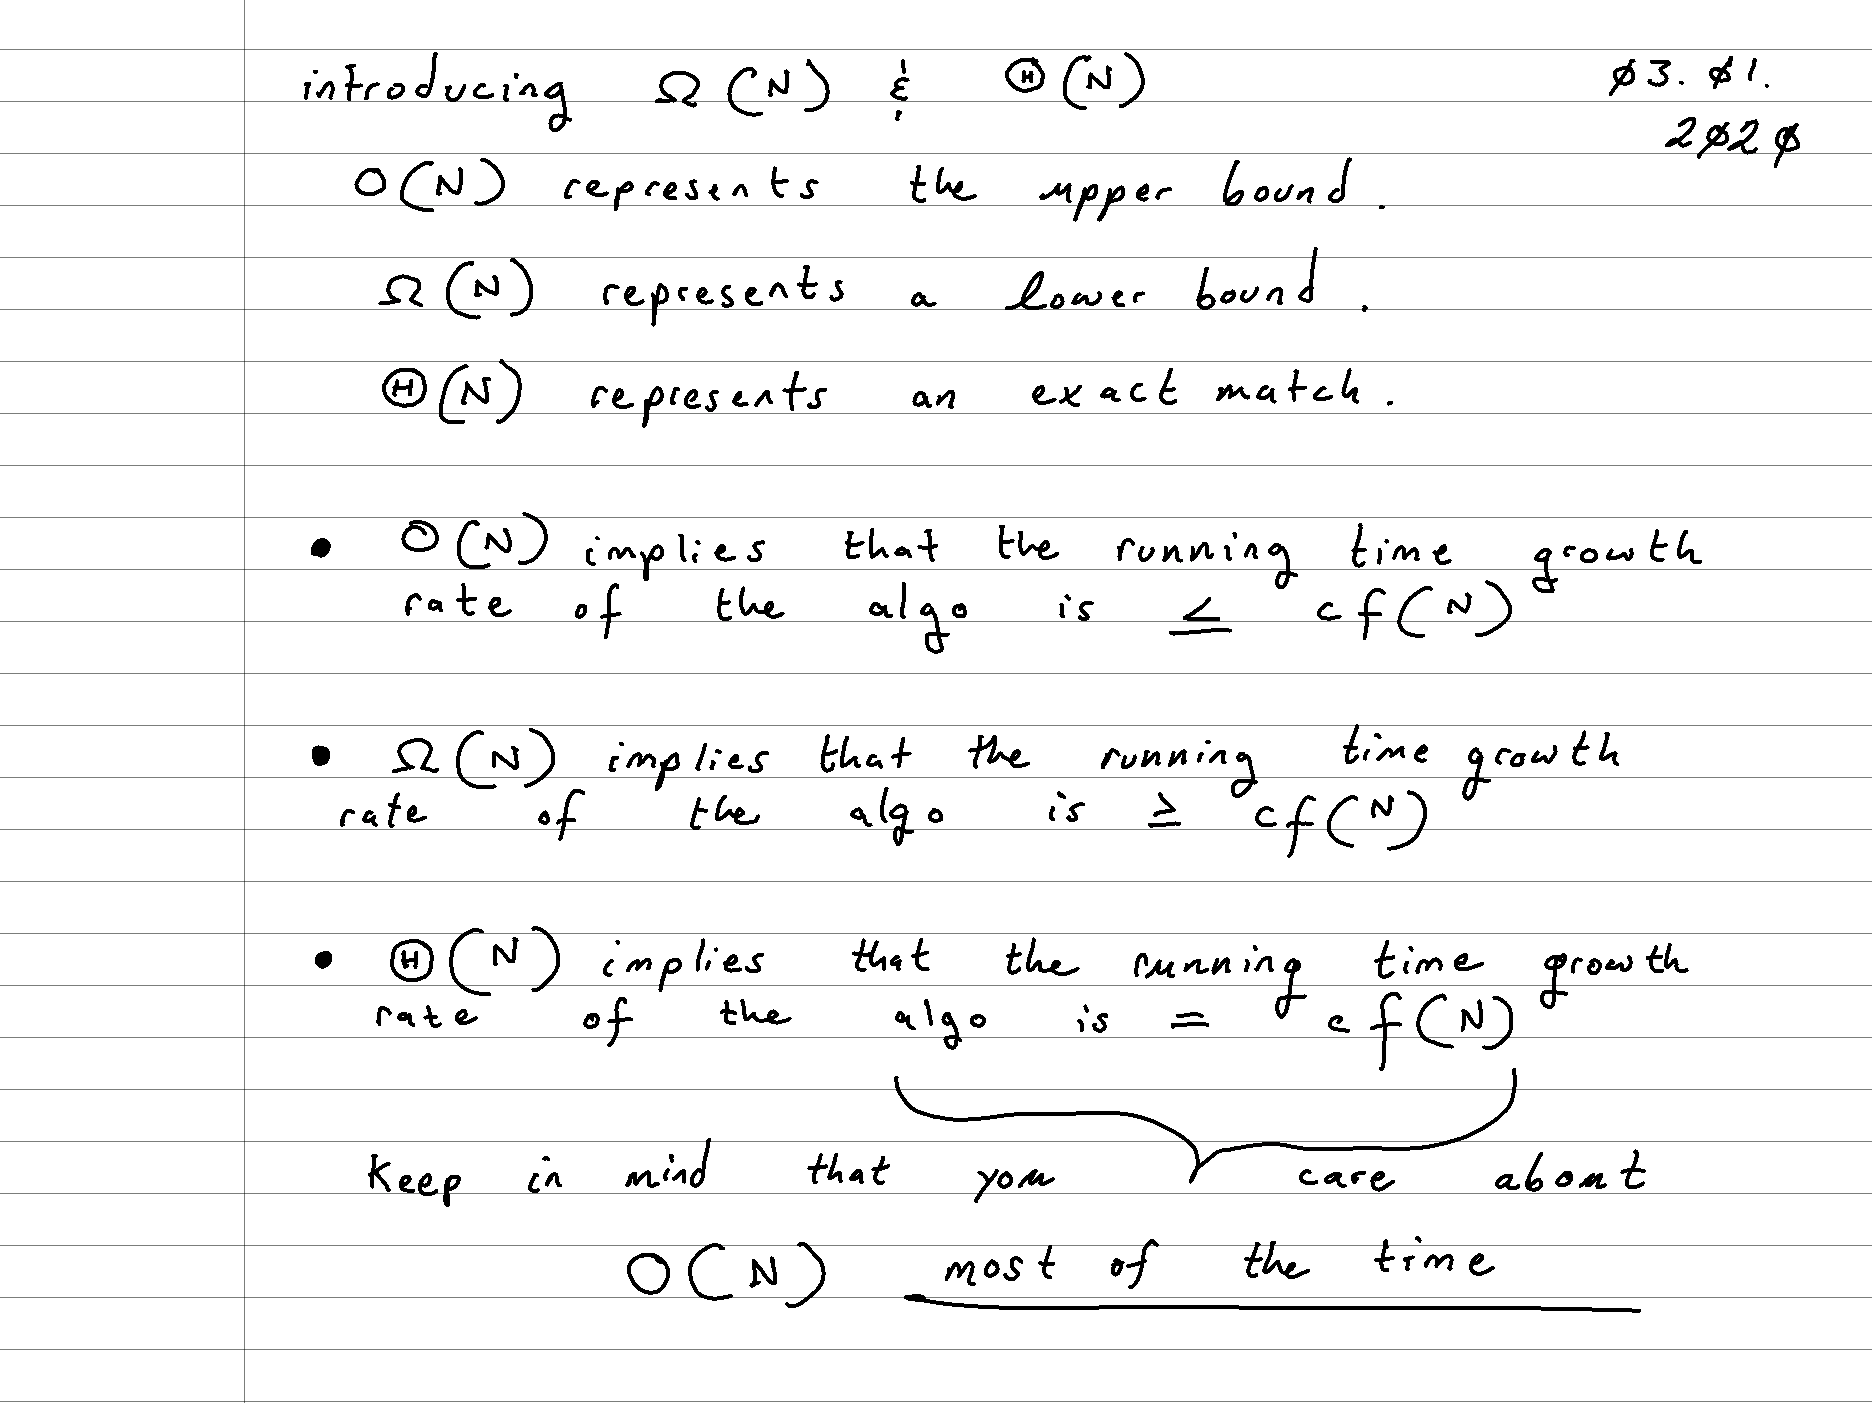 introducing Ω(N) & Θ(N)
03.01.
2020
O(N) represents the upper bound.
Ω(N) represents a lower bound.
Θ(N) represents an exact match.
• O(N) implies that the running time growth
rate of the algo is ≤ cf(N)
• Ω(N) implies that the running time growth
rate of the algo is ≥ cf(N)
• Θ(N) implies that the running time growth
rate of the algo is = cf(N)
Keep in mind that you care about
O(N) most of the time